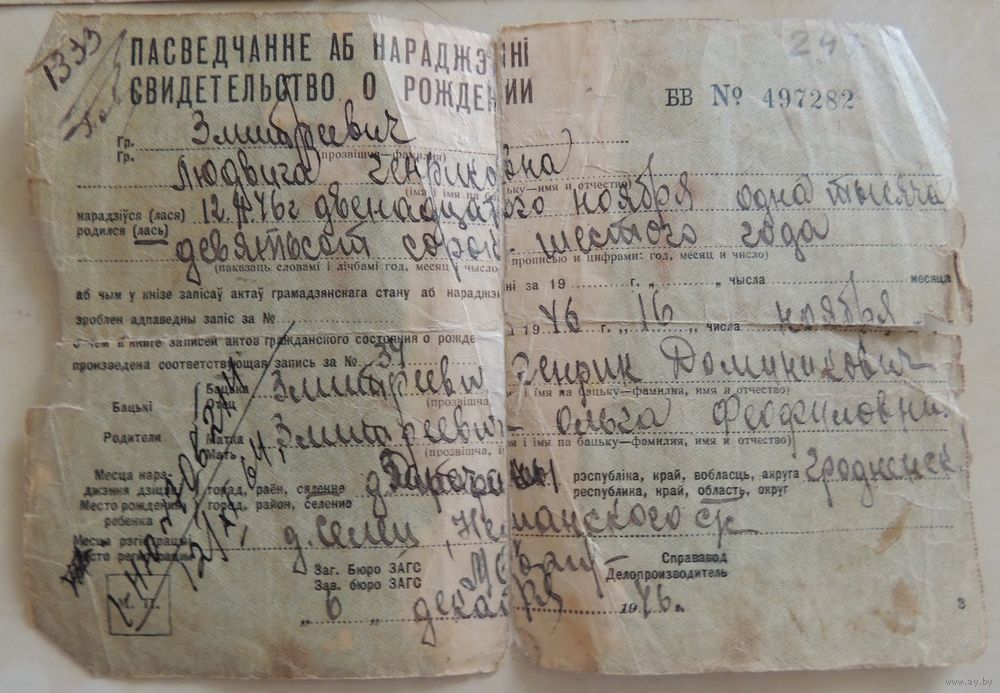 1339
ПАСВЕДЧАННЕ АБ НАРАДЖЭННІ
24
СВИДЕТЕЛЬСТВО О РОЖДЕНИИ
БВ № 497282
Гр. Змитреевич
Гр. (прозвішча—фамилия)
Людвига Генриковна
(імя і імя па бацьку—имя и отчество)
нарадзіўся (лася) 12.XI.46г двенадцатого ноября одна тысяча
родился (лась) девятьсот сорок шестого года
(паказаць словамі і лічбамі год, месяц і чысло прописью и цифрами: год, месяц и число)
аб чым у кнізе запісаў актаў грамадзянскага стану аб нараджэнні за 19 г. „ „ чысла месяца
зроблен адпаведны запіс за №
1946 г. „16 „ числа ноября
о чем в книге записей актов гражданского состояния о рожде
произведена соответствующая запись за № 34
Бацька Змитреевич Генрик Доминикович
Отец (прозвішча, і імя па бацьку—фамилия, имя и отчество)
Бацькі
Родители
Матка Змитреевич Ольга Феофиловна.
Мать (прозвішча, імя і імя па бацьку—фамилия, имя и отчество)
Месца нараджэння дзіцяці горад, раён, сяленне д. рэспубліка, край, вобласць, акруга Гродненск.
Место рождения ребенка город, район, селение республика, край, область, округ
Месца рэгістрацыі
Место регистрации д. Селец, Неманского с/с
Заг. Бюро ЗАГС Справавод
Зав. бюро ЗАГС Делопроизводитель
М. П.
„ 6 „ декабря 1946 г.
3
www.ay.by